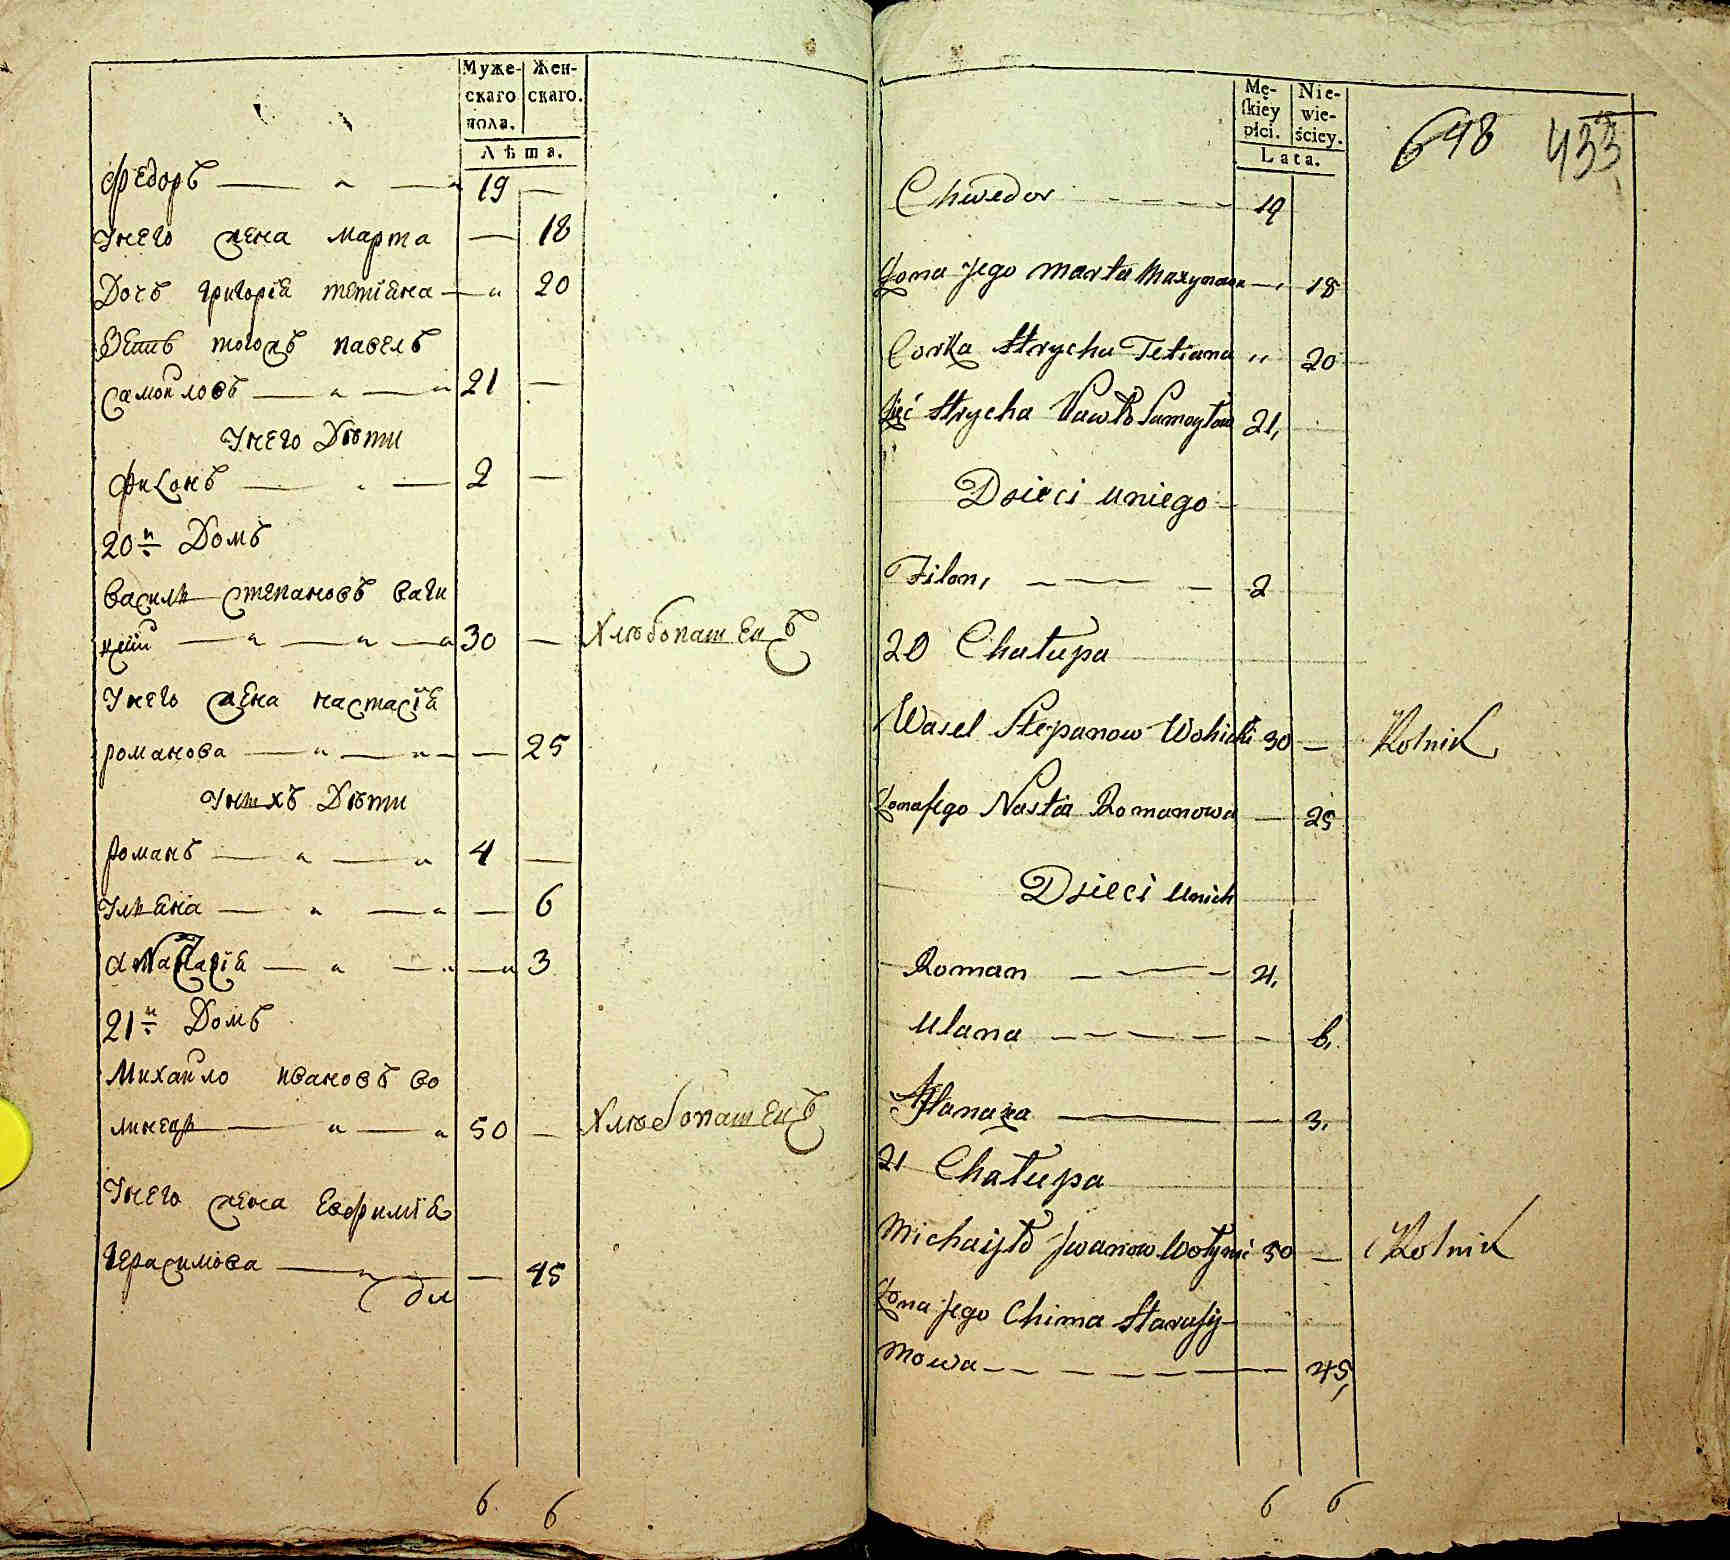 Муже-
скаго
пола.
Жен-
скаго.
Лѣта.
Федоръ 19
У него жена марта 18
Дочъ григорія тетіана 20
Зеть тогожъ павелъ
самойловъ 21
У него Дѣти
Филонъ 2
20й Домъ
василь степановъ
30 Хлѣбопашецъ
У него жена настасія
романова 25
У нихъ Дѣти
романъ 4
Уляна 6
3
21й Домъ
Михайло ивановъ во
50 Хлѣбопашецъ
У него жена Евфимія
Герасимова 45
6 6
Mę-
ſkiéy
płci.
Nie-
wie-
ściey.
Lata.
698 433
Chwedor 19
Żona Jego Marta 18
Corka Strycha Tetiana 20
Zięć Strycha Pawło Samoyłow 21,
Dzieci uniego
Filon, 2
20 Chałupa
Wasel Stepanow 30 Rolnik
Żona Jego Nastia Romanowa 25
Dzieci Unich
Roman 4,
Ulana 6,
3,
21 Chałupa
Michayło Jwanow 50 Rolnik
Żona Jego Chima
mowa 45,
6 6